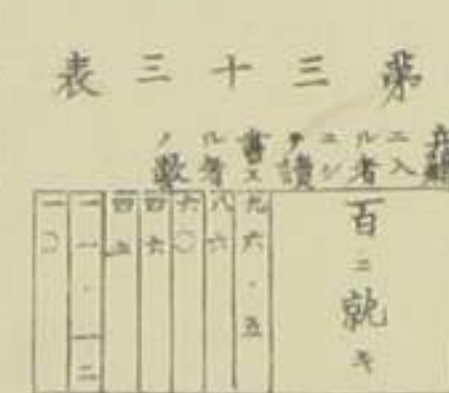 第三十三表
兵籍ニ入ル者ニシテ讀書スル者ノ數
百ニ就キ
九六・五
八六
六〇
四六
四五
一一・一二
一〇